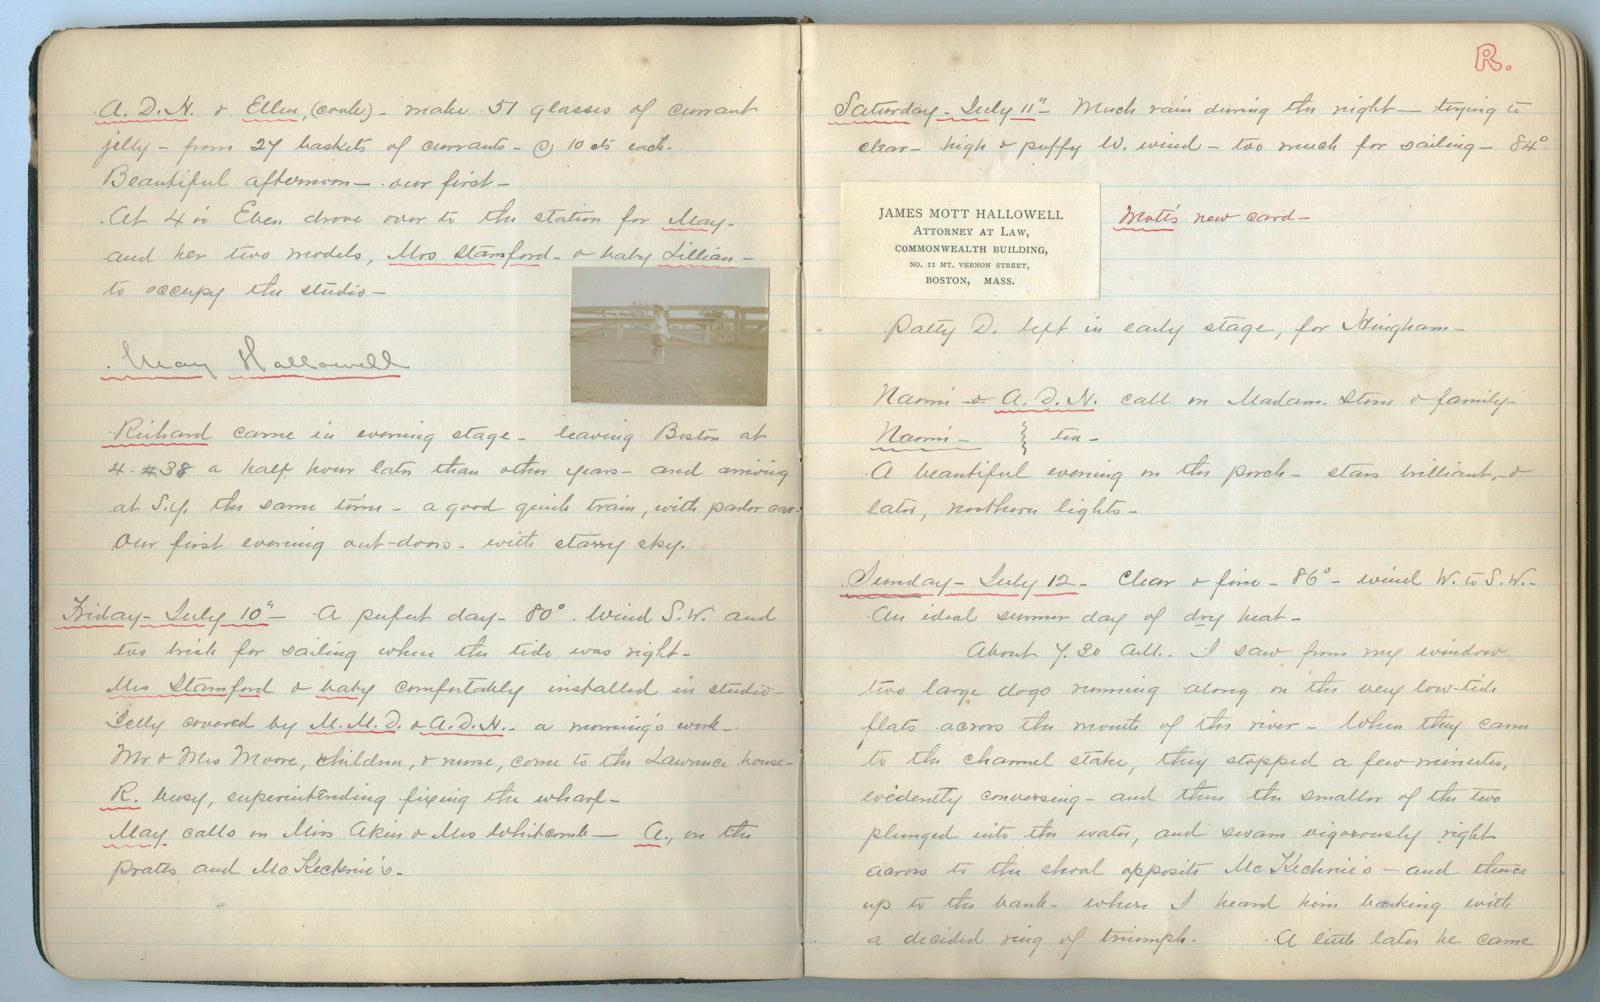 A. D. H. & Ellen, (cook) - make 51 glasses of currant
jelly - from 27 baskets of currants - @ 10 cts each.
Beautiful afternoon - our first -
At 4 Eben drove over to the station for May -
and her two models, Mrs Stamford - & baby Lillian -
to occupy the studio -
May Hallowell
Richard came in evening stage - leaving Boston at
4.38 a half hour later than other years - and arriving
at S.Y. the same time - a good quick train, with parlor car.
Our first evening out-doors - with starry sky.
Friday - July 10" - A perfect day - 80°. Wind S.W. and
too brisk for sailing when the tide was right -
Mrs Stamford & baby comfortably installed in studio -
Jelly covered by M. M. D. & A. D. H. - a morning's work -
Mr & Mrs Moore, children, & nurse, come to the Lawrence house -
R. busy, superintending fixing the wharf -
May calls on Miss Akin & Mrs Whitcomb - A., on the
Prates and McKechnie's -
R.
Saturday - July 11" - Much rain during the night - trying to
clear - high & puffy W. wind - too much for sailing - 84°
JAMES MOTT HALLOWELL
ATTORNEY AT LAW,
COMMONWEALTH BUILDING,
NO. 11 MT. VERNON STREET,
BOSTON, MASS.
Mott's new card -
Patty D. left in early stage, for Hingham -
Naomi & A. D. H. call on Madam. Stone & family -
Naomi - } tea -
A beautiful evening on the porch - stars brilliant, - &
later, northern lights -
Sunday - July 12 - Clear & fine - 86° - wind W. to S.W. -
An ideal summer day of dry heat -
About 7.30 A.M. I saw from my window
two large dogs running along on the very low-tide
flats across the mouth of the river - When they came
to the channel stake, they stopped a few minutes,
evidently conversing - and then the smaller of the two
plunged into the water, and swam vigorously right
across to the shoal opposite McKechnie's - and thence
up to the bank - where I heard him barking with
a decided ring of triumph. A little later he came